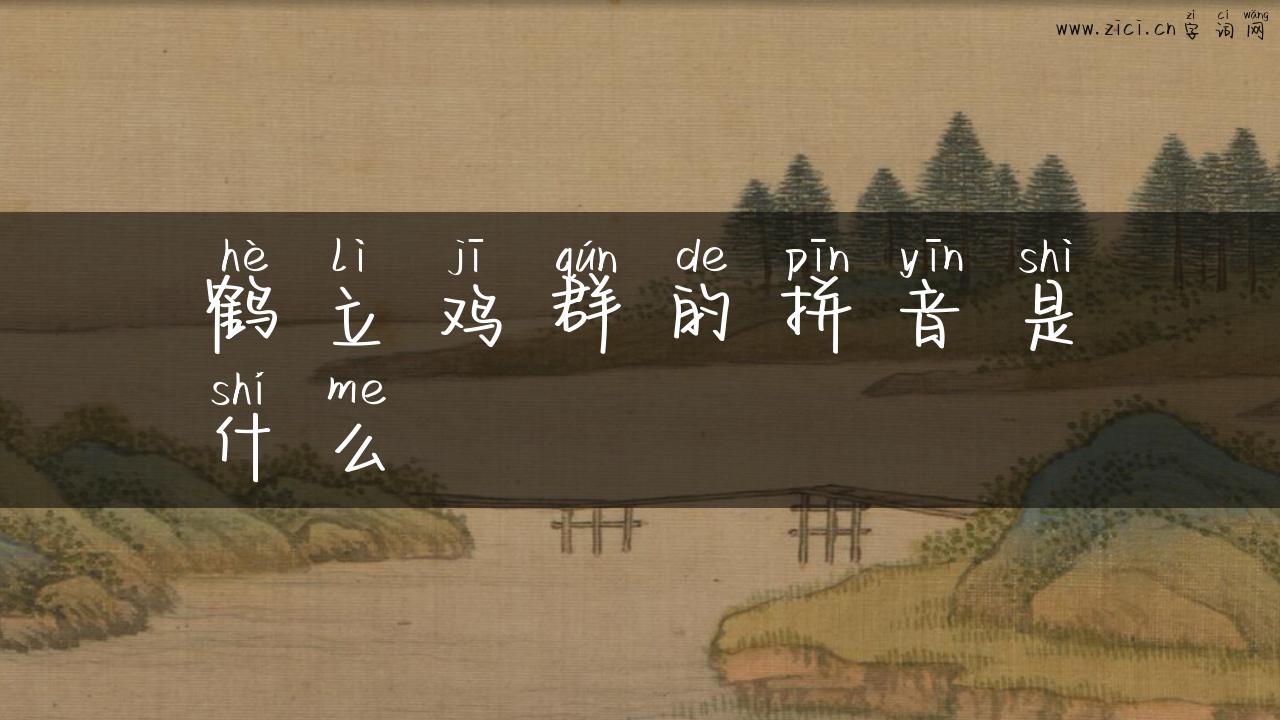 zì cí wǎng
www.zici.cn 字词网
hè lì jī qún de pīn yīn shì
鹤立鸡群的拼音是
shí me
什么